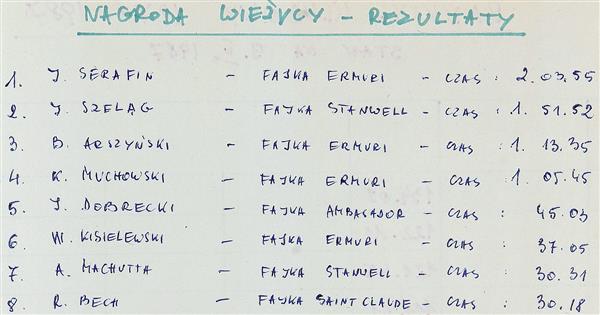 NAGRODA WIEŻYCY - REZULTATY
1. J. SERAFIN - FAJKA ERMURI - CZAS : 2.03.55
2. J. SZELĄG - FAJKA STANWELL - CZAS : 1. 51.52
3. B. ARSZYŃSKI - FAJKA ERMURI - CZAS : 1. 13.35
4. K. MUCHOWSKI - FAJKA ERMURI - CZAS : 1. 05.45
5. J. DOBRECKI - FAJKA AMBASADOR - CZAS : 45.03
6. W. KISIELEWSKI - FAJKA ERMURI - CZAS : 37.05
7. A. MACHUTTA - FAJKA STANWELL - CZAS : 30.31
8. R. BECH - FAJKA SAINT CLAUDE - CZAS : 30.18